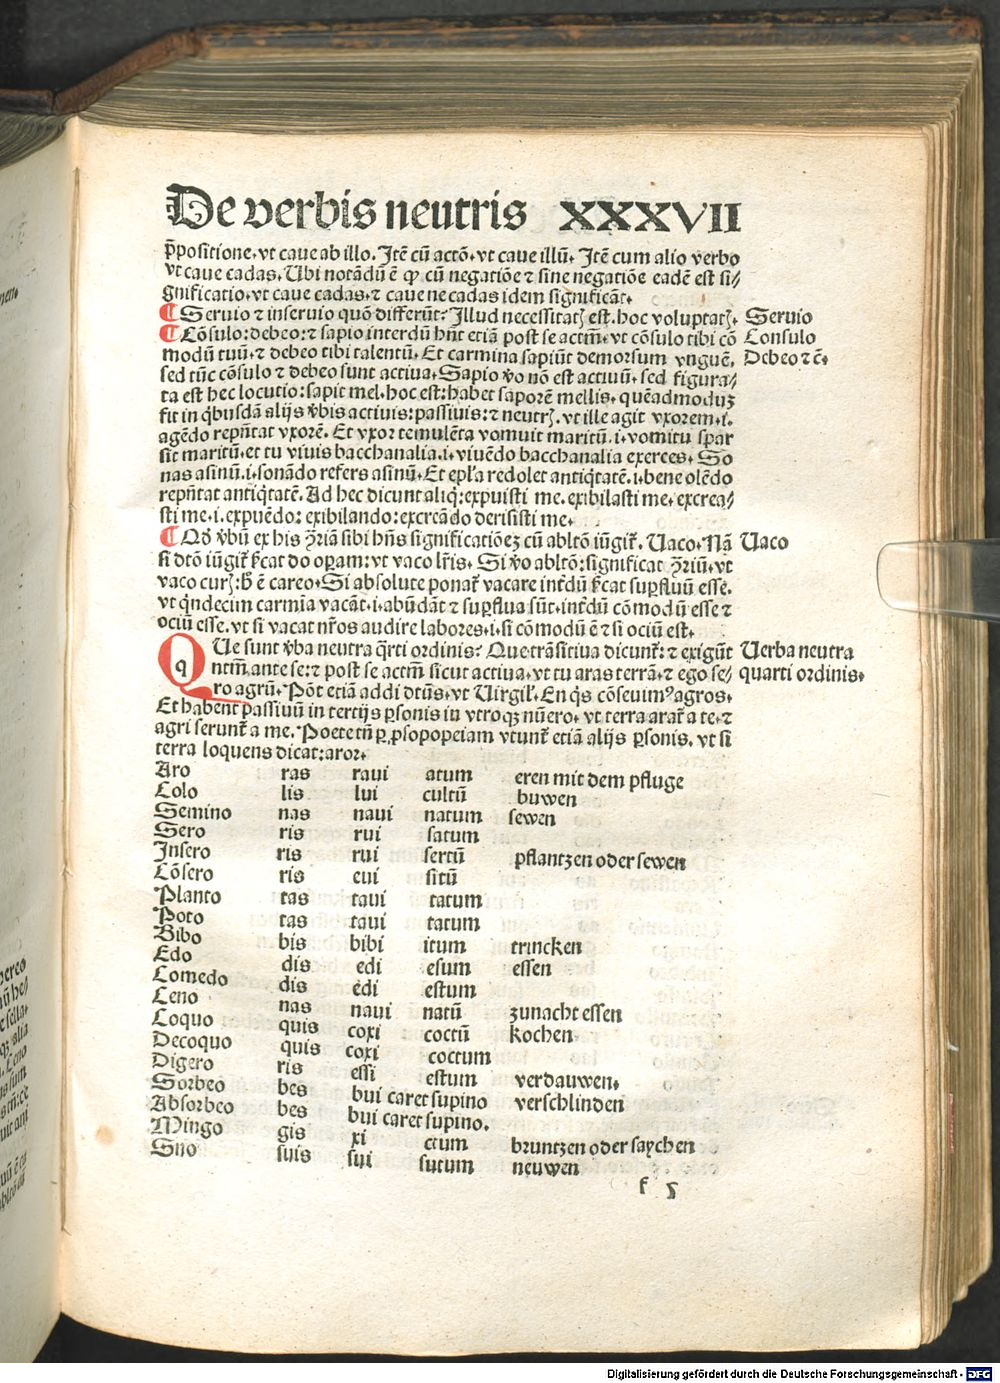 De verbis neutris XXXVII
p̄positione. vt caue ab illo. Itē cū actō. vt caue illū. Itē cum alio verbo
vt caue cadas. Ubi notādū ē ꝙ cū negatiōe ⁊ sine negatiōe eadē est si⸗
gnificatio. vt caue cadas. ⁊ caue ne cadas idem significāt.
¶ Seruio ⁊ inseruio quō differūt? Illud necessitatꝭ est. hoc voluptatꝭ. Seruio
¶ Cōsulo: debeo: ⁊ sapio interdū hn̄t etiā post se actm̄. vt cōsulo tibi cō Consulo
modū tuū. ⁊ debeo tibi talentū. Et carmina sapiūt demorsum vnguē. Debeo ⁊ c̄.
sed tūc cōsulo ⁊ debeo sunt actiua. Sapio v̄o nō est actiuū. sed figura⸗
ta est hec locutio: sapit mel. hoc est: habet saporē mellis. quēadmoduꝫ
fit in q̇busdā alijs v̄bis actiuis: passiuis: ⁊ neutrꝭ. vt ille agit vxorem. i.
agēdo repn̄tat vxorē. Et vxor temulēta vomuit maritū. i. vomitu spar
sit maritū. et tu viuis bacchanalia. i. viuēdo bacchanalia exerces. So
nas asinū. i. sonādo refers asinū. Et epl̄a redolet antiq̇tatē. i. bene olēdo
repn̄tat antiq̇tatē. Ad hec dicunt aliq̇: expuisti me. exibilasti me. excrea⸗
sti me. i. expuēdo: exibilando: excreādo derisisti me.
¶ Qd̄ v̄bū ex his ꝯ̄riā sibi hn̄s significatiōeꝫ cū abltō iūgit̄. Uaco. Nā Uaco
si dtō iūgit̄ s̄cat do oꝑam: vt vaco lr̄is. Si v̄o abltō: significat ꝯ̄riū. vt
vaco curꝭ: h̄ ē careo. Si absolute ponat̄ vacare int̄dū s̄cat suꝑfluū esse.
vt q̇ndecim carmīa vacāt. i. abūdāt ⁊ suꝑflua sūt. int̄dū cōmodū esse ⁊
ociū esse. vt si vacat nr̄os audire labores. i. si cōmodū ē ⁊ si ociū est.
QUe sunt v̄ba neutra q̄rti ordinis? Que trāsitiua dicunt̄: ⁊ exigūt Uerba neutra
ntm̄ ante se: ⁊ post se actm̄ sicut actiua. vt tu aras terrā. ⁊ ego se⸗ quarti ordinis.
ro agrū. Pōt etiā addi dtūs. vt Uirgil̓. En q̇s cōseuimꝰ agros.
Et habent passiuū in tertijs ꝑsonis in vtroqꝫ nūero. vt terra arat̄ a te. ⁊
agri serunt̄ a me. Poete tn̄ ꝑ ꝓsopopeiam vtunt̄ etiā alijs ꝑsonis. vt si
terra loquens dicat: aror.
Aro ras raui atum eren mit dem pfluge
Colo lis lui cultū buwen
Semino nas naui natum sewen
Sero ris rui satum
Insero ris rui sertū pflantzen oder sewen
Cōsero ris eui sitū
Planto tas taui tatum
Poto tas taui tatum
Bibo bis bibi itum trincken
Edo dis edi esum essen
Comedo dis edi estum
Ceno nas naui natū zunacht essen
Coquo quis coxi coctū kochen
Decoquo quis coxi coctum
Digero ris essi estum verdauwen.
Sorbeo bes bui caret supino verschlinden
Absorbeo bes bui caret supino.
Mingo gis xi ctum bruntzen oder saychen
Suo suis sui sutum neuwen
f 5
Digitalisierung gefördert durch die Deutsche Forschungsgemeinschaft - DFG